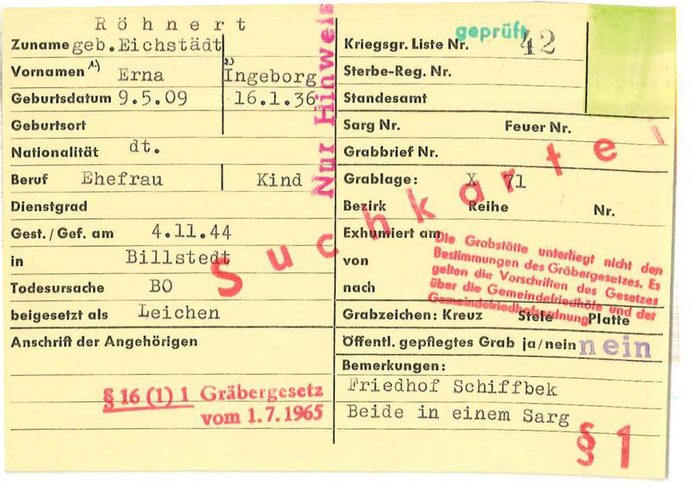 Röhnert
Zuname geb.Eichstädt
Vornamen 1) Erna 2) Ingeborg
Geburtsdatum 9.5.09 16.1.36
Geburtsort
Nationalität dt.
Beruf Ehefrau Kind
Dienstgrad
Gest./Gef. am 4.11.44
in Billstedt
Todesursache BO
beigesetzt als Leichen
Anschrift der Angehörigen
§ 16 (1) 1 Gräbergesetz
vom 1.7.1965
Nur Hinweis
Suchkartei
geprüft
Kriegsgr. Liste Nr. 42
Sterbe-Reg. Nr.
Standesamt
Sarg Nr. Feuer Nr.
Grabbrief Nr.
Grablage: X 71
Bezirk Reihe Nr.
Exhumiert am
von
nach
Die Grabstätte unterliegt nicht den
Bestimmungen des Gräbergesetzes. Es
gelten die Vorschriften des Gesetzes
über die Gemeindefriedhöfe und der
Gemeindefriedhofsordnung
Grabzeichen: Kreuz Stele Platte
Öffentl. gepflegtes Grab ja/nein nein
Bemerkungen:
Friedhof Schiffbek
Beide in einem Sarg
§ 1